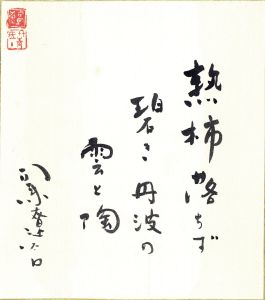 熟柿落ちず
碧き丹波の
雲と陶